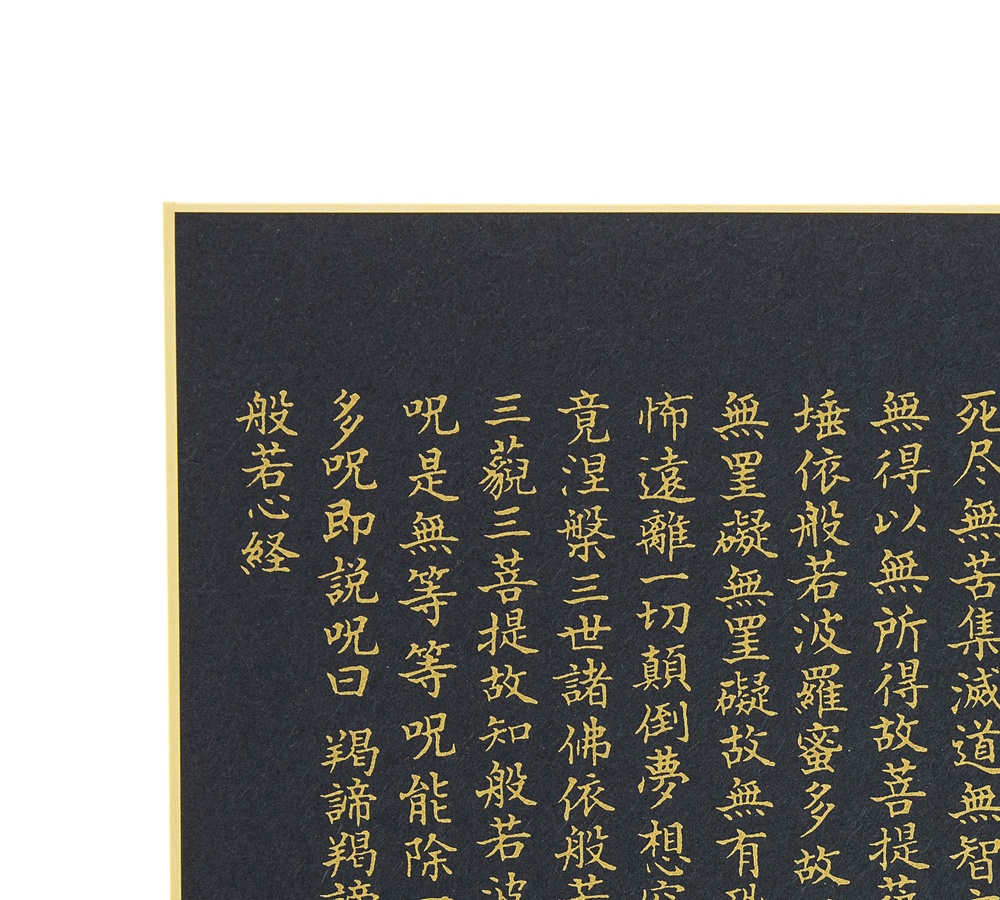 死尽無苦集滅道無智
無得以無所得故菩提
埵依般若波羅蜜多故
無罣礙無罣礙故無有
怖遠離一切顛倒夢想
竟涅槃三世諸佛依般若
三藐三菩提故知般若波
呪是無等等呪能除
多呪即説呪曰 羯諦羯諦
般若心経